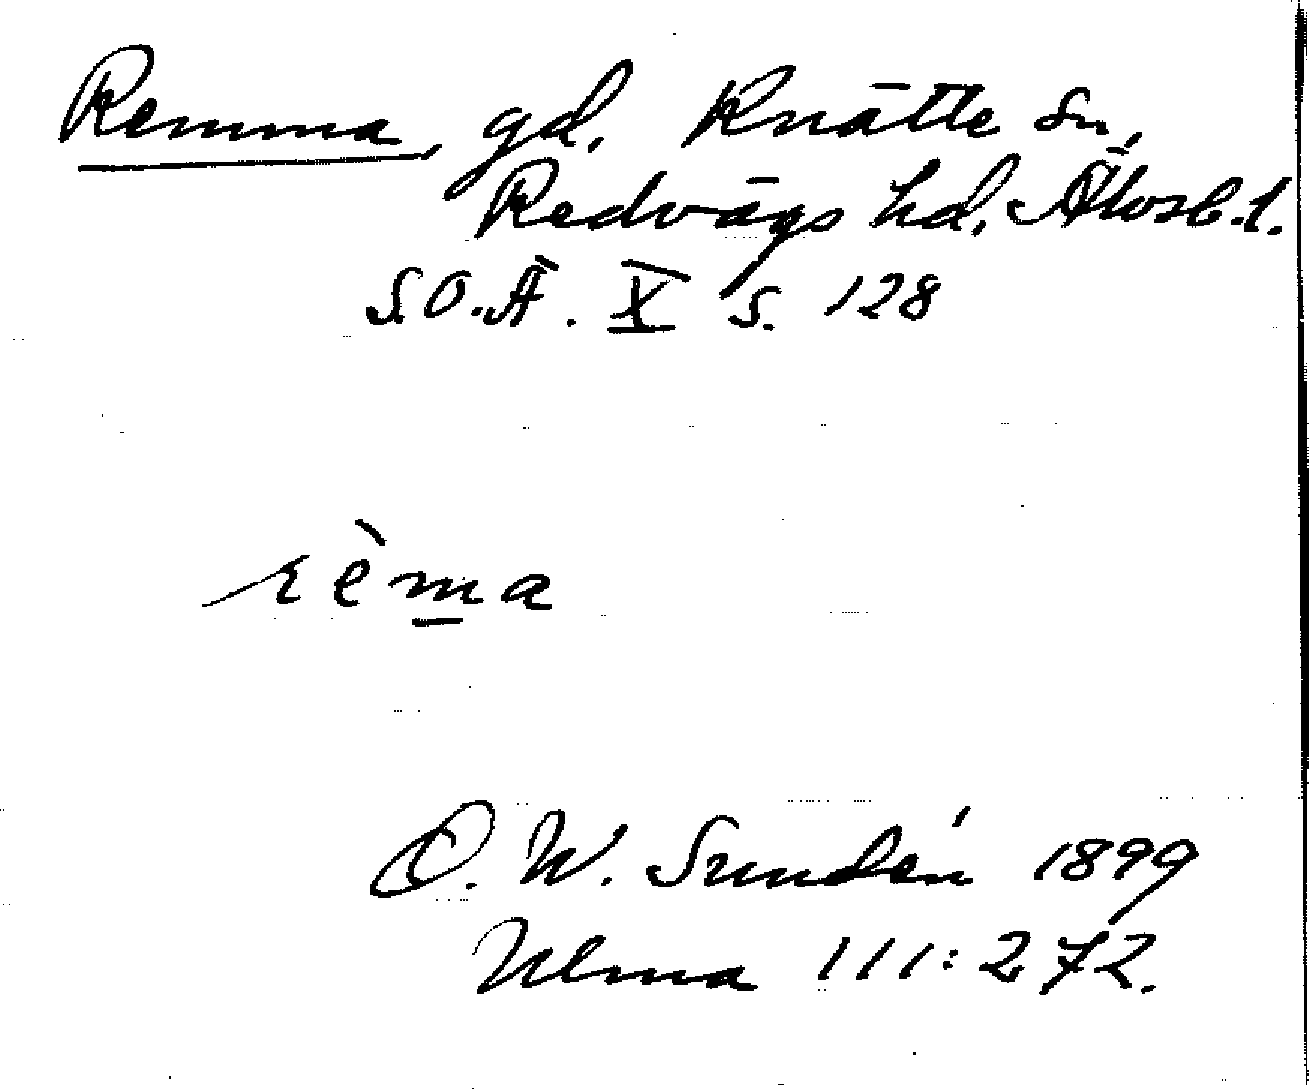 Remma, gd. Knätte sn,
Redvägs hd, Älvsb. l.
S.O.Ä. X s. 128
rèma
O. W. Sundén 1899
Ulma 111:272.